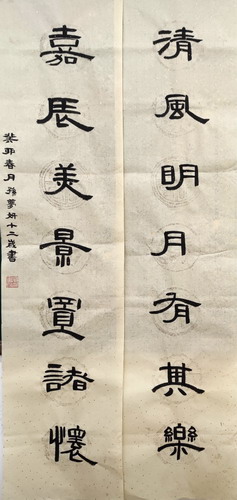 清風朙月有其樂
嘉辰美景置諸懷
癸卯春月孫夢妍十二歲書